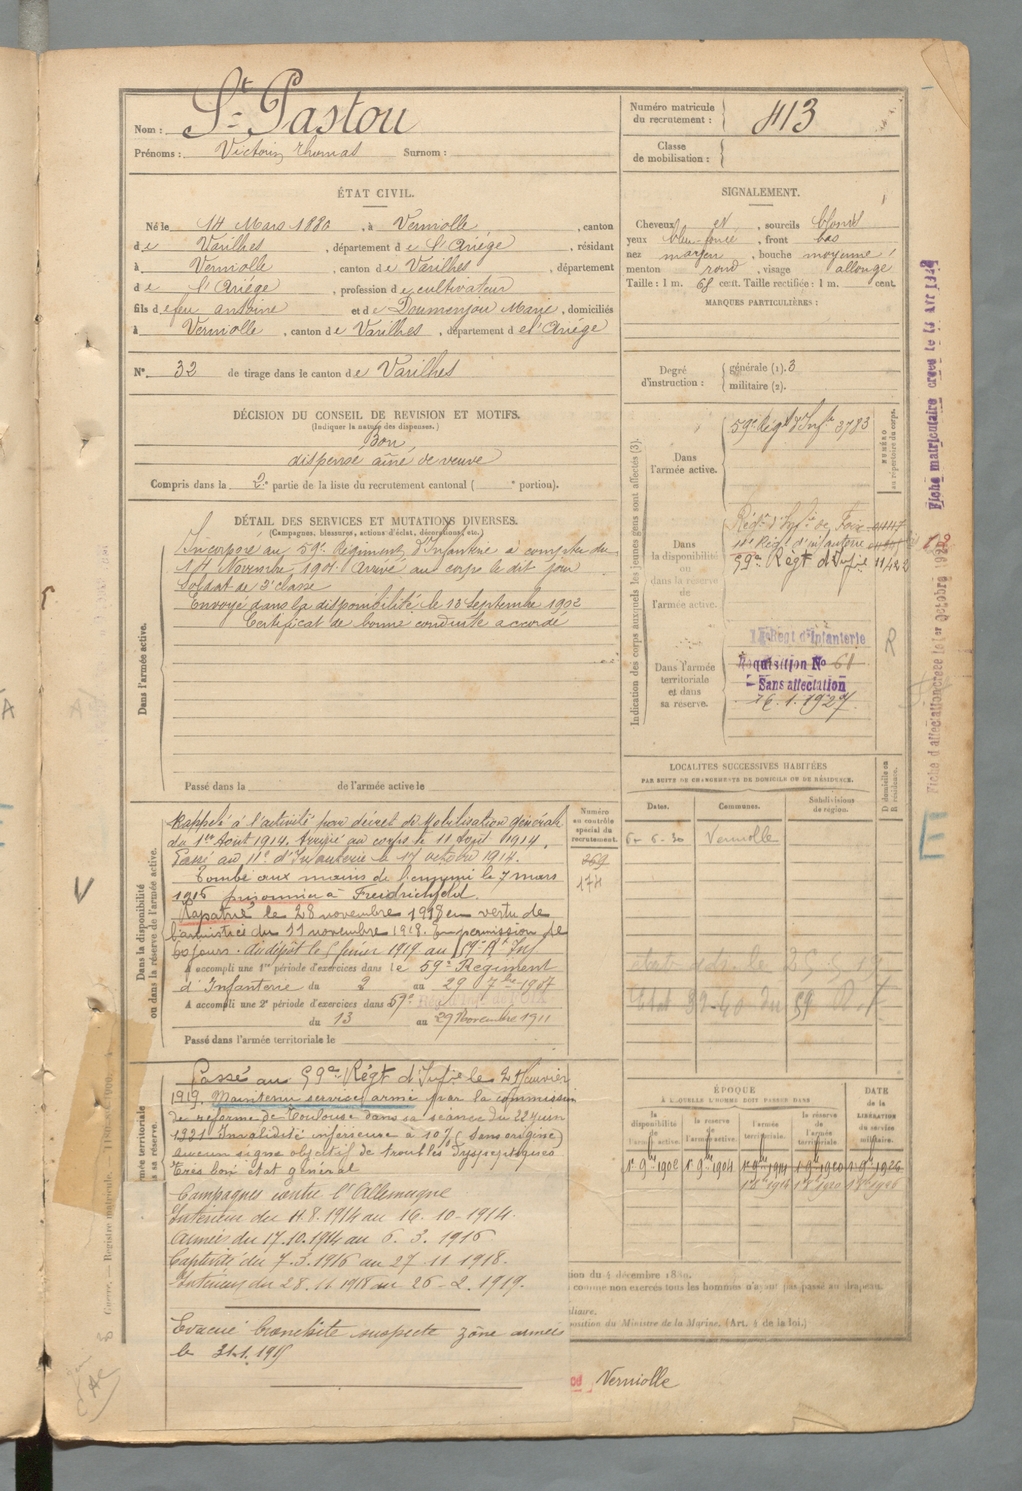 Nom : St Pastou
Prénoms : Victorin Thomas Surnom :
Numéro matricule du recrutement : 413
Classe de mobilisation :
ÉTAT CIVIL.
Né le 14 Mars 1880, à Verniolle, canton
de Varilhes, département de l'Ariége, résidant
à Verniolle, canton de Varilhes, département
de l'Ariége, profession de cultivateur
fils de feu antoine et de Doumenjou Marie, domiciliés
à Verniolle, canton de Varilhes, département de l'Ariége
N° 32 de tirage dans le canton de Varilhes
SIGNALEMENT.
Cheveux et, sourcils blonds
yeux bleu foncé, front bas
nez moyen, bouche moyenne
menton rond, visage allongé
Taille : 1 m. 68 cent. Taille rectifiée : 1 m. cent.
MARQUES PARTICULIÈRES :
Degré d'instruction : générale (1). 3
militaire (2).
DÉCISION DU CONSEIL DE REVISION ET MOTIFS.
(Indiquer la nature des dispenses.)
Bon
dispensé aîné de veuve
Compris dans la 2e partie de la liste du recrutement cantonal ( e portion).
DÉTAIL DES SERVICES ET MUTATIONS DIVERSES.
(Campagnes, blessures, actions d'éclat, décorations, etc.)
Dans l'armée active.
Incorporé au 59e Régiment d'Infanterie à compter du
14 Novembre 1901. Arrivé au corps le dit jour
Soldat de 2e classe
Envoyé dans la disponibilité le 18 Septembre 1902
Certificat de bonne conduite accordé
Passé dans la de l'armée active le
Indication des corps auxquels les jeunes gens sont affectés (3).
NUMÉRO au répertoire du corps.
Dans l'armée active.
59e Régt d'Infie 3783
Dans la disponibilité ou dans la réserve de l'armée active.
Régt d'Infie de Foix
11e Régt d'infanterie
59e Régt d'Infie
Dans l'armée territoriale et dans sa réserve.
Régt d'Infanterie
Réquisition No 61
Sans affectation
R
Fiche matriculaire créée le
Fiche d'affectation créée le 1er Octobre
LOCALITÉS SUCCESSIVES HABITÉES
PAR SUITE DE CHANGEMENTS DE DOMICILE OU DE RÉSIDENCE.
Dates. Communes. Subdivisions de région. D domicile ou R résidence.
6-6-30 Verniolle
Dans la disponibilité ou dans la réserve de l'armée active.
Numéro au contrôle spécial du recrutement.
174
Rappelé à l'activité par décret de Mobilisation générale
du 1er Août 1914. Arrivé au corps le 11 Août 1914.
Passé au 11e d'Infanterie le 17 octobre 1914.
Tombé aux mains de l'ennemi le 7 mars
1916 prisonnier à Freidrichfeld.
Rapatrié le 28 novembre 1918 en vertu de
l'armistice du 11 novembre 1918. En permission de
60 jours. au dépôt le 5 février 1919 au 59e Rt Inf
A accompli une 1re période d'exercices dans le 59e Régiment
d'Infanterie du 2 au 29 7bre 1907
A accompli une 2e période d'exercices dans 59e
du 13 au 29 Novembre 1911
Passé dans l'armée territoriale le
Passé au 59e Régt d'Infie le
1919. Maintenu service armé par la commission
de réforme de Toulouse dans sa séance du 22 juin
1921 Invalidité inférieure à 10% (Sans origine)
aucun signe objectif de troubles dyspeptiques
Très bon état général
Campagnes contre l'Allemagne
Intérieur du 11.8.1914 au 16.10-1914.
Armées du 17.10.1914 au 6.3.1916
Captivité du 7.3.1916 au 27-11 1918.
Intérieur du 28.11.1918 au 26-2.1919.
Evacué bronchite suspecte zône armées
le 31.1.1915
ÉPOQUE
À LAQUELLE L'HOMME DOIT PASSER DANS
la disponibilité de l'armée active. la réserve de l'armée active. l'armée territoriale. la réserve de l'armée territoriale.
DATE de la LIBÉRATION du service militaire.
1er 9bre 1902 1er 9bre 1904
tion du 4 décembre 1889.
comme non exercés tous les hommes n'ayant pas passé au drapeau.
position du Ministre de la Marine. (Art. 4 de la loi.)
Verniolle
E
V